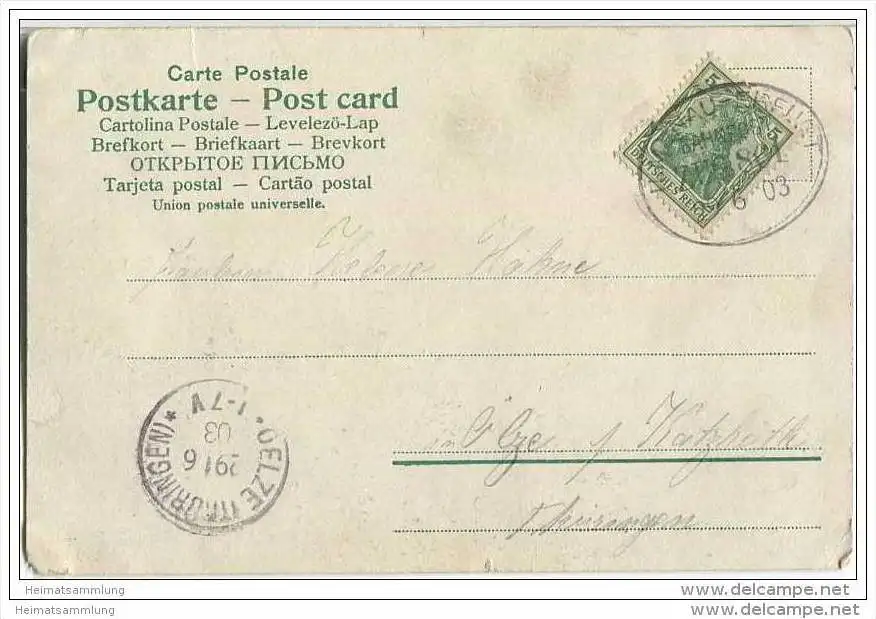 Carte Postale
Postkarte – Post card
Cartolina Postale – Levelező-Lap
Brefkort – Briefkaart – Brevkort
ОТКРЫТОЕ ПИСЬМО
Tarjeta postal – Cartão postal
Union postale universelle.
5
5
DEUTSCHES REICH
6 03
Fräulein Helene Hähne
in Ölze
Thüringen
* OELZE (THÜRINGEN) *
29 6
03
7-8 V
Heimatsammlung
Heimatsammlung
www.delcampe.net
www.delcampe.net